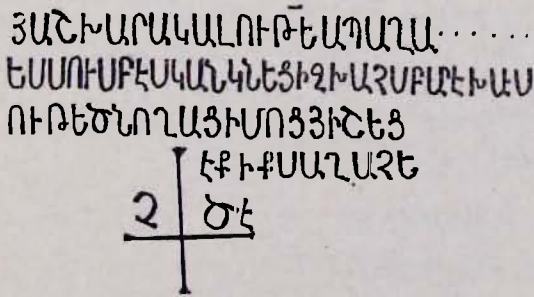 ՅԱՇԽԱՐԱԿԱԼՈՒԹԵԱՊԱՂԱ......
ԵՍՍՈՒՍԲԷՍԿԱՆԿՆԵՑԻԶԽԱՉՍԲԱՐԷԽԱՒՍ
ՈՒԹԵԾՆՈՂԱՑԻՄՈՑՅԻՇԵՑ
ԷՔԻՔՍԱՂԱՉԵ
Չ ԾԷ